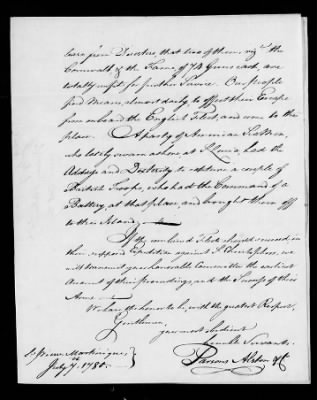 learn from Deserters, that two of them, viz.t the
Cornwall & the Fame of 74 Guns each, are
totally unfit for further Service. Our people
find Means, almost daily to effect their Escape
from on board the English Fleet, and come to this
place. A party of American Seamen,
who lately swam ashore at St Lucia, had the
Address and Dexterity to capture a couple of
British Troops, who had the Command of a
Battery, at that place, and brought them off
to this Island.
If the combined Fleets should succeed, in
their supposed Expedition against St Christophers, we
will transmit your honorable Committee the earliest
Account of their proceedings, and the Success of their
Arms.
We have the honor to be, with the greatest Respect,
Gentlemen,
your most obedient
humble Servants.
St Pierre Martinique,
July 7th 1780.
Parsons Alston & Co